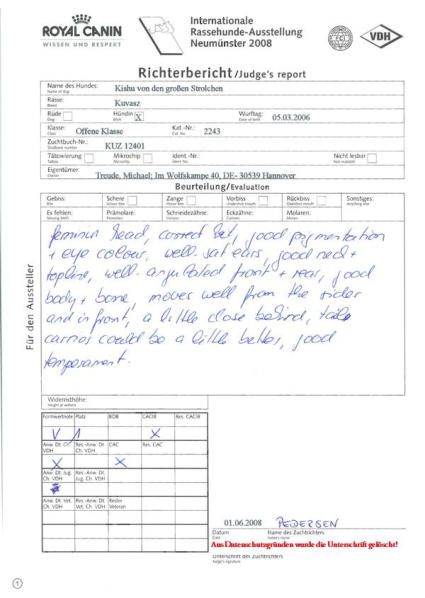 ROYAL CANIN
WISSEN UND RESPEKT
Internationale
Rassehunde-Ausstellung
Neumünster 2008
FCI
VDH
Richterbericht/Judge's report
Name des Hundes: Kishu von den großen Strolchen
Name of dog
Rasse: Kuvasz
Breed
Rüde Hündin X Wurftag: 05.03.2006
Dog Bitch Date of birth
Klasse: Offene Klasse Kat.-Nr.: 2243
Class Cat. No.
Zuchtbuch-Nr.: KUZ 12401
Studbook number
Tätowierung Mikrochip Ident.-Nr. Nicht lesbar
Eigentümer: Treude, Michael; Im Wolfskampe 40, DE- 30539 Hannover
Owner
Beurteilung/Evaluation
Gebiss: Schere Zange Vorbiss Rückbiss Sonstiges:
Es fehlen: Prämolare: Schneidezähne: Eckzähne: Molaren:
feminin head, correct bet, good pigmentation
+ eye colour, well-sat ears, good neck +
topline, well-angulated front + rear, good
body + bone, moves well from the sider
and in front, a little close behind, tail
carriage could be a little better, good
temperament.
Für den Aussteller
Widerristhöhe:
Height at withers
Formwertnote Platz BOB CACIB Res. CACIB
V 1 X
Anw. Dt. Ch. VDH Res.-Anw. Dt. Ch. VDH CAC Res. CAC
X X
Anw. Dt. Jug. Ch. VDH Res.-Anw. Dt. Jug. Ch. VDH
Anw. Dt. Vet. Ch. VDH Res.-Anw. Dt. Vet. Ch. VDH Bester Veteran
01.06.2008 PEDERSEN
Datum Name des Zuchtrichters
Date Judge's name
Aus Datenschutzgründen wurde die Unterschrift gelöscht!
Unterschrift des Zuchtrichters
Judge's signature
1